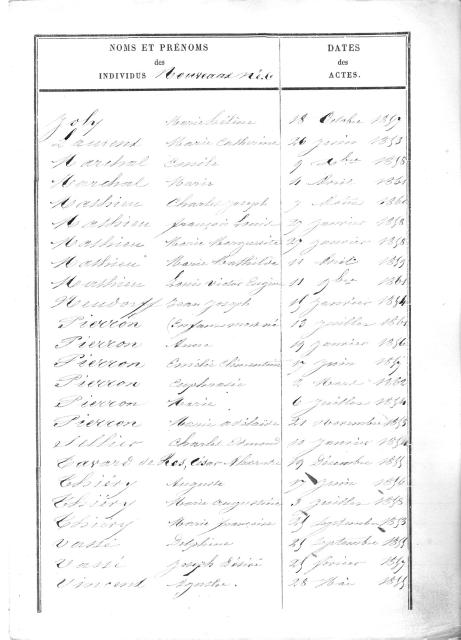 NOMS ET PRÉNOMS DATES
des des
INDIVIDUS Nouveaux nés ACTES.
Joly Marie 18 Octobre 1857
Laurent Marie Catherine 26 juin 1853
Marchal Emile 9 1858
Marchal Marie 11 Août 1861
Mathieu Charles Joseph 7 1861
Mathieu françois Louis 27 janvier 1858
Mathieu Marie Marguerite 27 janvier 1858
Mathieu Marie Mathilde 11 1859
Mathieu Louis Victor Eugène 11 9bre 1861
Neudorff Jean Joseph 15 janvier 1854
Pierron (Enfant mort né 12 juillet 1861
Pierron Anne 19 janvier 1856
Pierron Emilie Clémentine 17 juin 1857
Pierron Euphrasie 2 Mars 1862
Pierron Marie 6 juillet 1854
Pierron Marie adélaïde 21 novembre 1855
Sellier Charles Edmond 10 janvier 1854
Tavard de 19 Décembre 1855
Thiéry Auguste 17 juin 1856
Thiéry Marie augustine 3 juillet 1853
Thiéry Marie françoise 25 septembre 1853
Vassé Delphine 25 septembre 1855
Vassé Joseph Désiré 25 février 1857
Vincent 28 Mai 1855